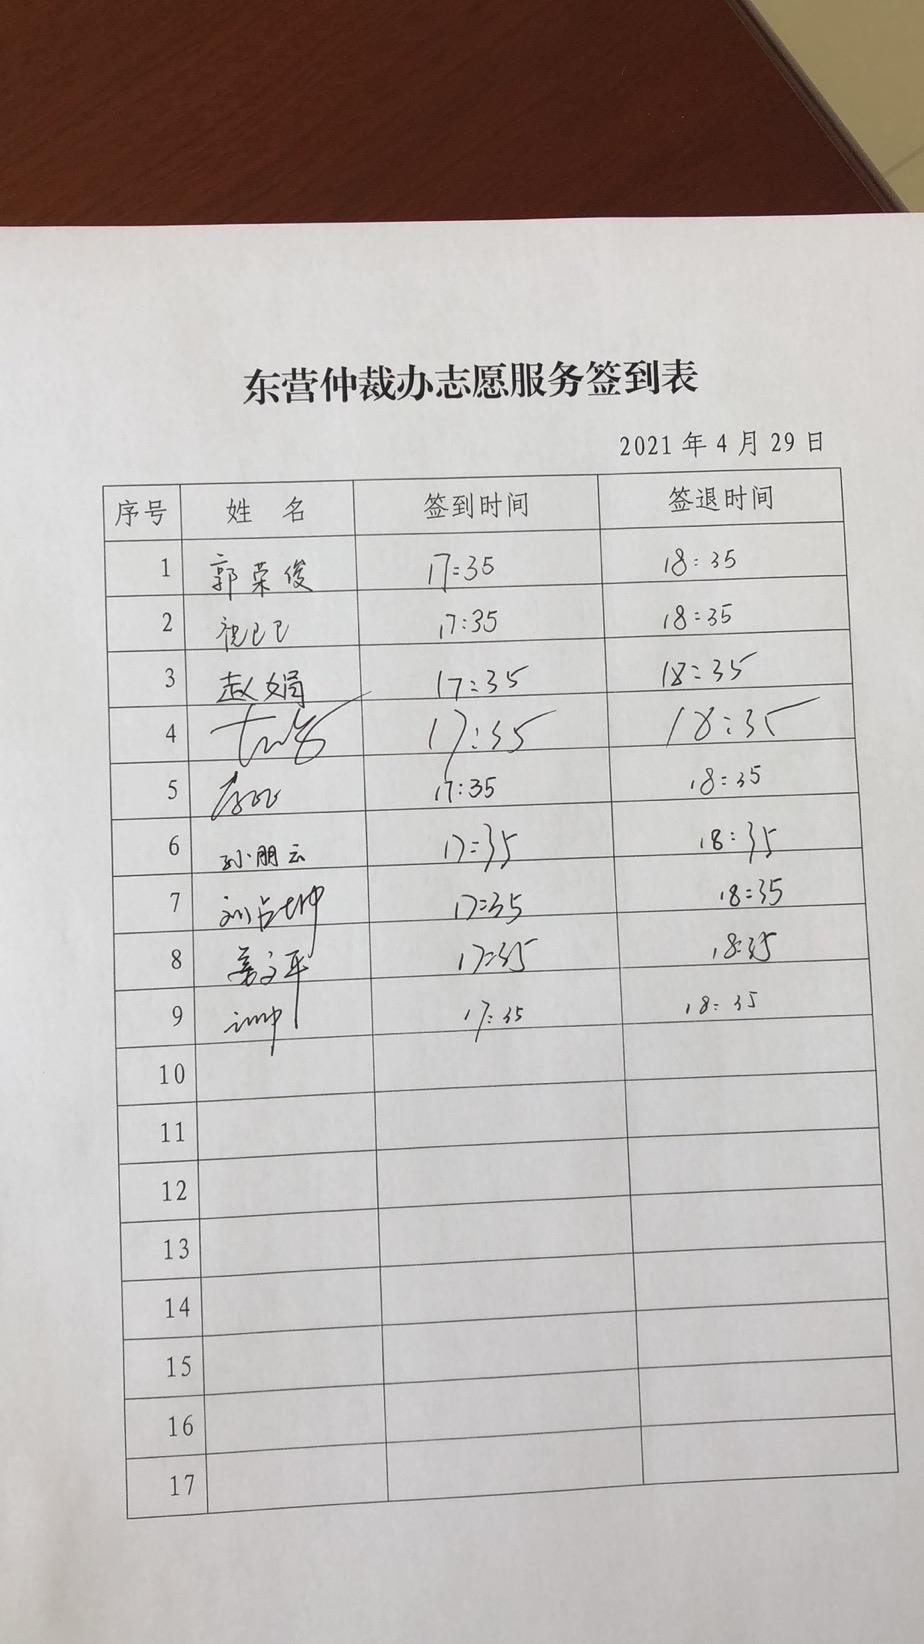 东营仲裁办志愿服务签到表
2021 年 4 月 29 日
序号 姓 名 签到时间 签退时间
1 郭荣俊 17:35 18:35
2 祝己己 17:35 18:35
3 赵娟 17:35 18:35
4 17:35 18:35
5 17:35 18:35
6 孙朋云 17:35 18:35
7 刘占坤 17:35 18:35
8 姜文平 17:35 18:35
9 17:35 18:35
10
11
12
13
14
15
16
17